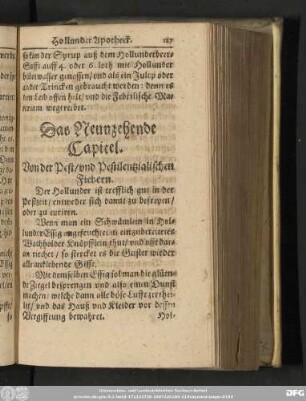 Hollunder Apotheck. 187
so kan der Syrup auß dem Hollunderbeers
Safft auff 4. oder 6. loth mit Hollunder
blüt wasser genossen/ und als ein Julep oder
ander Trincken gebraucht werden: denn es
den Leib offen helt/ und die
wegtreibet.
Das Neunzehende
Capitel.
Von der Pest/ und Pestilentzialischen
Fiebern.
Der Hollunder ist trefflich gut in der
Pestzeit/ entweder sich damit zu befreyen/
oder zu curiren.
Wenn man ein Schwämlein in Hols
lunder Essig angefeuchtet in eingebeitztes
Wachholder Knöpfflein thut/ und offt dars
an riechet/ so stercket es die Geister wieder
alle anklebende Gifft.
Mit demselben Essig sol man die glüens
de Ziegel besprengen und also einen Dunst
machen: welche dann alle böse Lufft zertheis
let/ und das Hauß und Kleider vor dessen
Vergifftung bewahret. Hol-